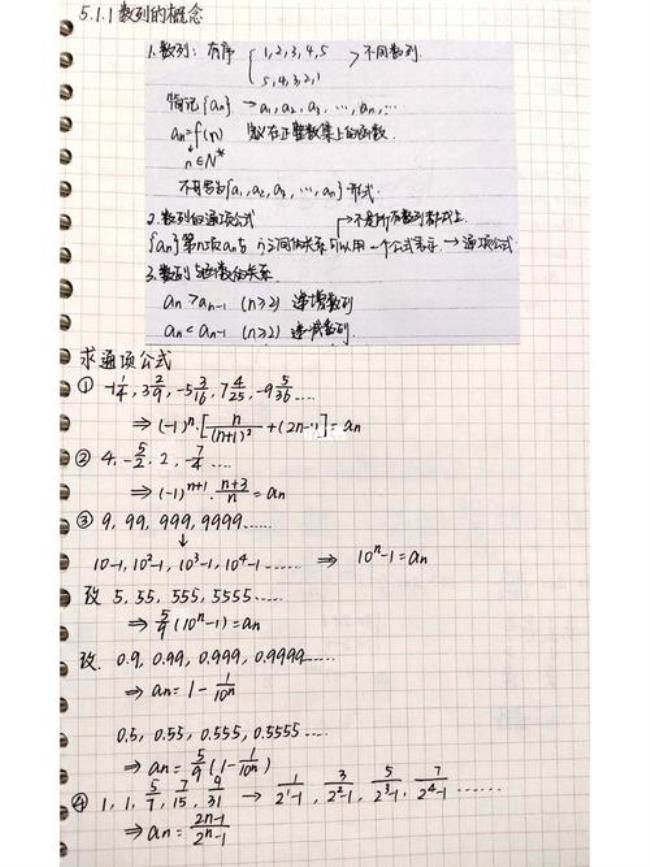 5.1.1 数列的概念
1. 数列: 有序 { 1,2,3,4,5 > 不同数列.
5,4,3,2,1
简记{an} → a₁, a₂, a₃, …, an, …
an=f(n) 定义在正整数集上的函数.
↓
n∈N*
不可写为{a₁, a₂, a₃, …, an}形式
2. 数列的通项公式 ↱不是所有数列都式上.
{an}第n项an与 n之间的关系可以用一个公式表示 → 通项公式
3. 数列与函数的关系.
an > an-1 (n≥2) 递增数列
an < an-1 (n≥2) 递减数列.
求通项公式
① -1¼, 3 2/9, -5 3/16, 7 4/25, -9 5/36 ....
⇒ (-1)ⁿ·[n/(n+1)² + (2n-1)] = an
② 4, -5/2, 2, -7/4 ....
⇒ (-1)ⁿ⁺¹·(n+3)/n = an
③ 9, 99, 999, 9999......
↓
10-1, 10²-1, 10³-1, 10⁴-1 ...... ⇒ 10ⁿ-1=an
改 5, 55, 555, 5555......
⇒ 5/9(10ⁿ-1)=an
改. 0.9, 0.99, 0.999, 0.9999......
⇒ an= 1 - 1/10ⁿ
0.5, 0.55, 0.555, 0.5555 ....
⇒ an= 5/9(1-1/10ⁿ)
④ 1, 1, 5/7, 7/15, 9/31 → 1/(2¹-1), 3/(2²-1), 5/(2³-1), 7/(2⁴-1) ......
⇒ an= (2n-1)/(2ⁿ-1)